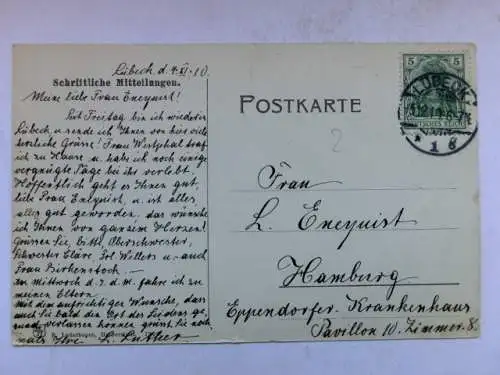 Lübeck d. 4. XI. 10.
Schriftliche Mitteilungen.
Meine liebe Frau Encquist!
Seit Freitag bin ich wieder in
Lübeck u. sende ich Ihnen von hier viele
herzliche Grüsse! Frau Westphal traf
ich zu Hause u. habe ich noch einige
vergnügte Tage bei ihr verlebt.
Hoffentlich geht es Ihnen gut,
liebe Frau Encquist, u. ist alles,
alles gut geworden, das wünsche
ich Ihnen von ganzem Herzen!
Grüssen Sie, bitte, Oberschwester,
Schwester Cläre, Wellers u. auch
Frau Birkenstock.
Am Mittwoch d. M. fahre ich zu
meinen Eltern.
Mit dem aufrichtigen Wunsche, dass
auch Sie bald den Ort des Leidens ge-
verlassen können grüsst Sie noch-
mals Ihre L. Luther.
POSTKARTE
2
5 5
DEUTSCHES REICH
LÜBECK
Frau
L. Encquist
Hamburg
Eppendorfer Krankenhaus
Pavillon 10. Zimmer 8.